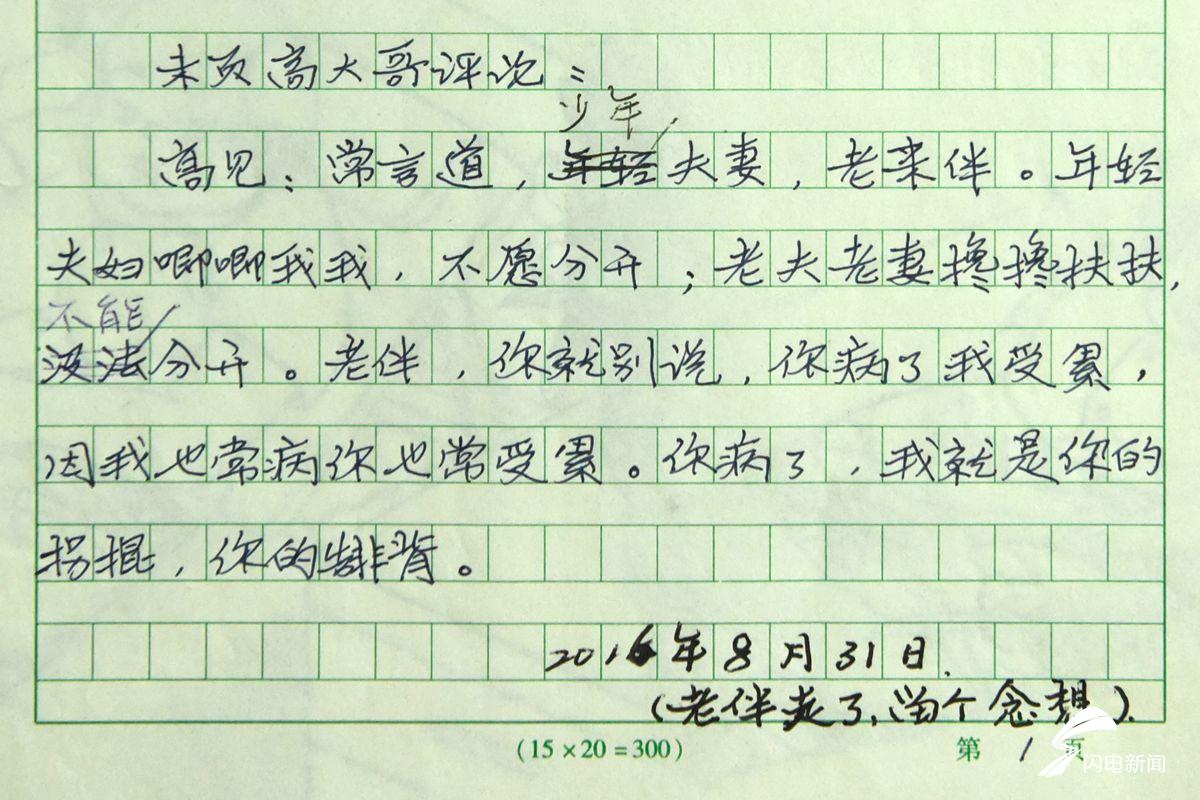 末页高大哥评说：
少年
高见：常言道，年轻夫妻，老来伴。年轻
夫妇唧唧我我，不愿分开；老夫老妻搀搀扶扶，
不能
没法分开。老伴，你就别说，你病了我受累，
因我也常病你也常受累。你病了，我就是你的
拐棍，你的靠背。
2016年8月31日.
（老伴走了，留个念想）.
（15×20=300） 第1页
闪电新闻